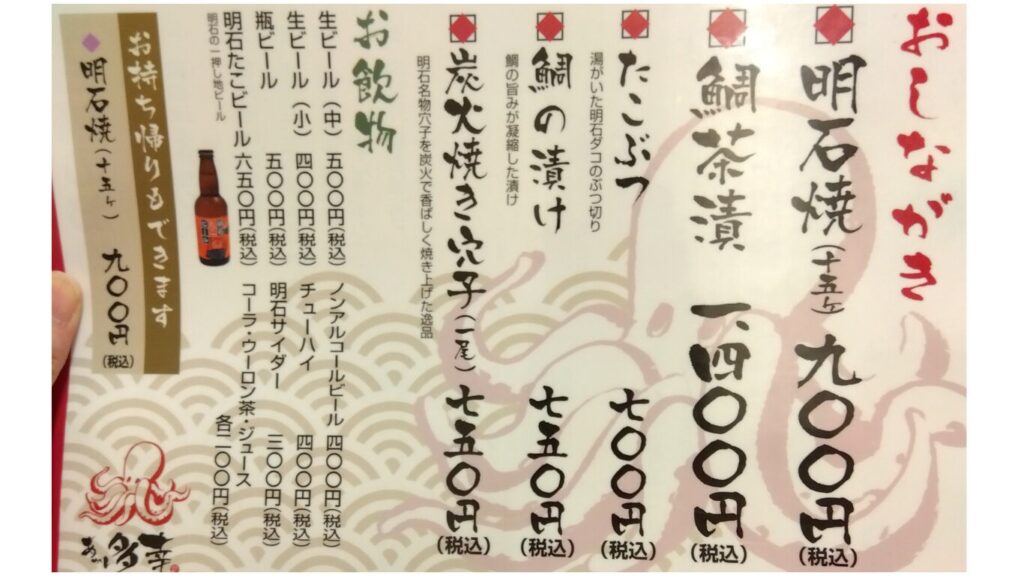 おしながき
明石焼（十五ヶ） 九〇〇円（税込）
鯛茶漬 一、四〇〇円（税込）
たこぶつ 七〇〇円（税込）
湯がいた明石ダコのぶつ切り
鯛の漬け 七五〇円（税込）
鯛の旨みが凝縮した漬け
炭火焼き穴子（一尾） 七五〇円（税込）
明石名物穴子を炭火で香ばしく焼き上げた逸品
お飲物
生ビール（中） 五〇〇円（税込）
生ビール（小） 四〇〇円（税込）
瓶ビール 五〇〇円（税込）
明石たこビール 六五〇円（税込）
明石の一押し地ビール
ノンアルコールビール 四〇〇円（税込）
チューハイ 四〇〇円（税込）
明石サイダー 三〇〇円（税込）
コーラ・ウーロン茶・ジュース 各二〇〇円（税込）
お持ち帰りもできます
明石焼（十五ヶ） 九〇〇円（税込）